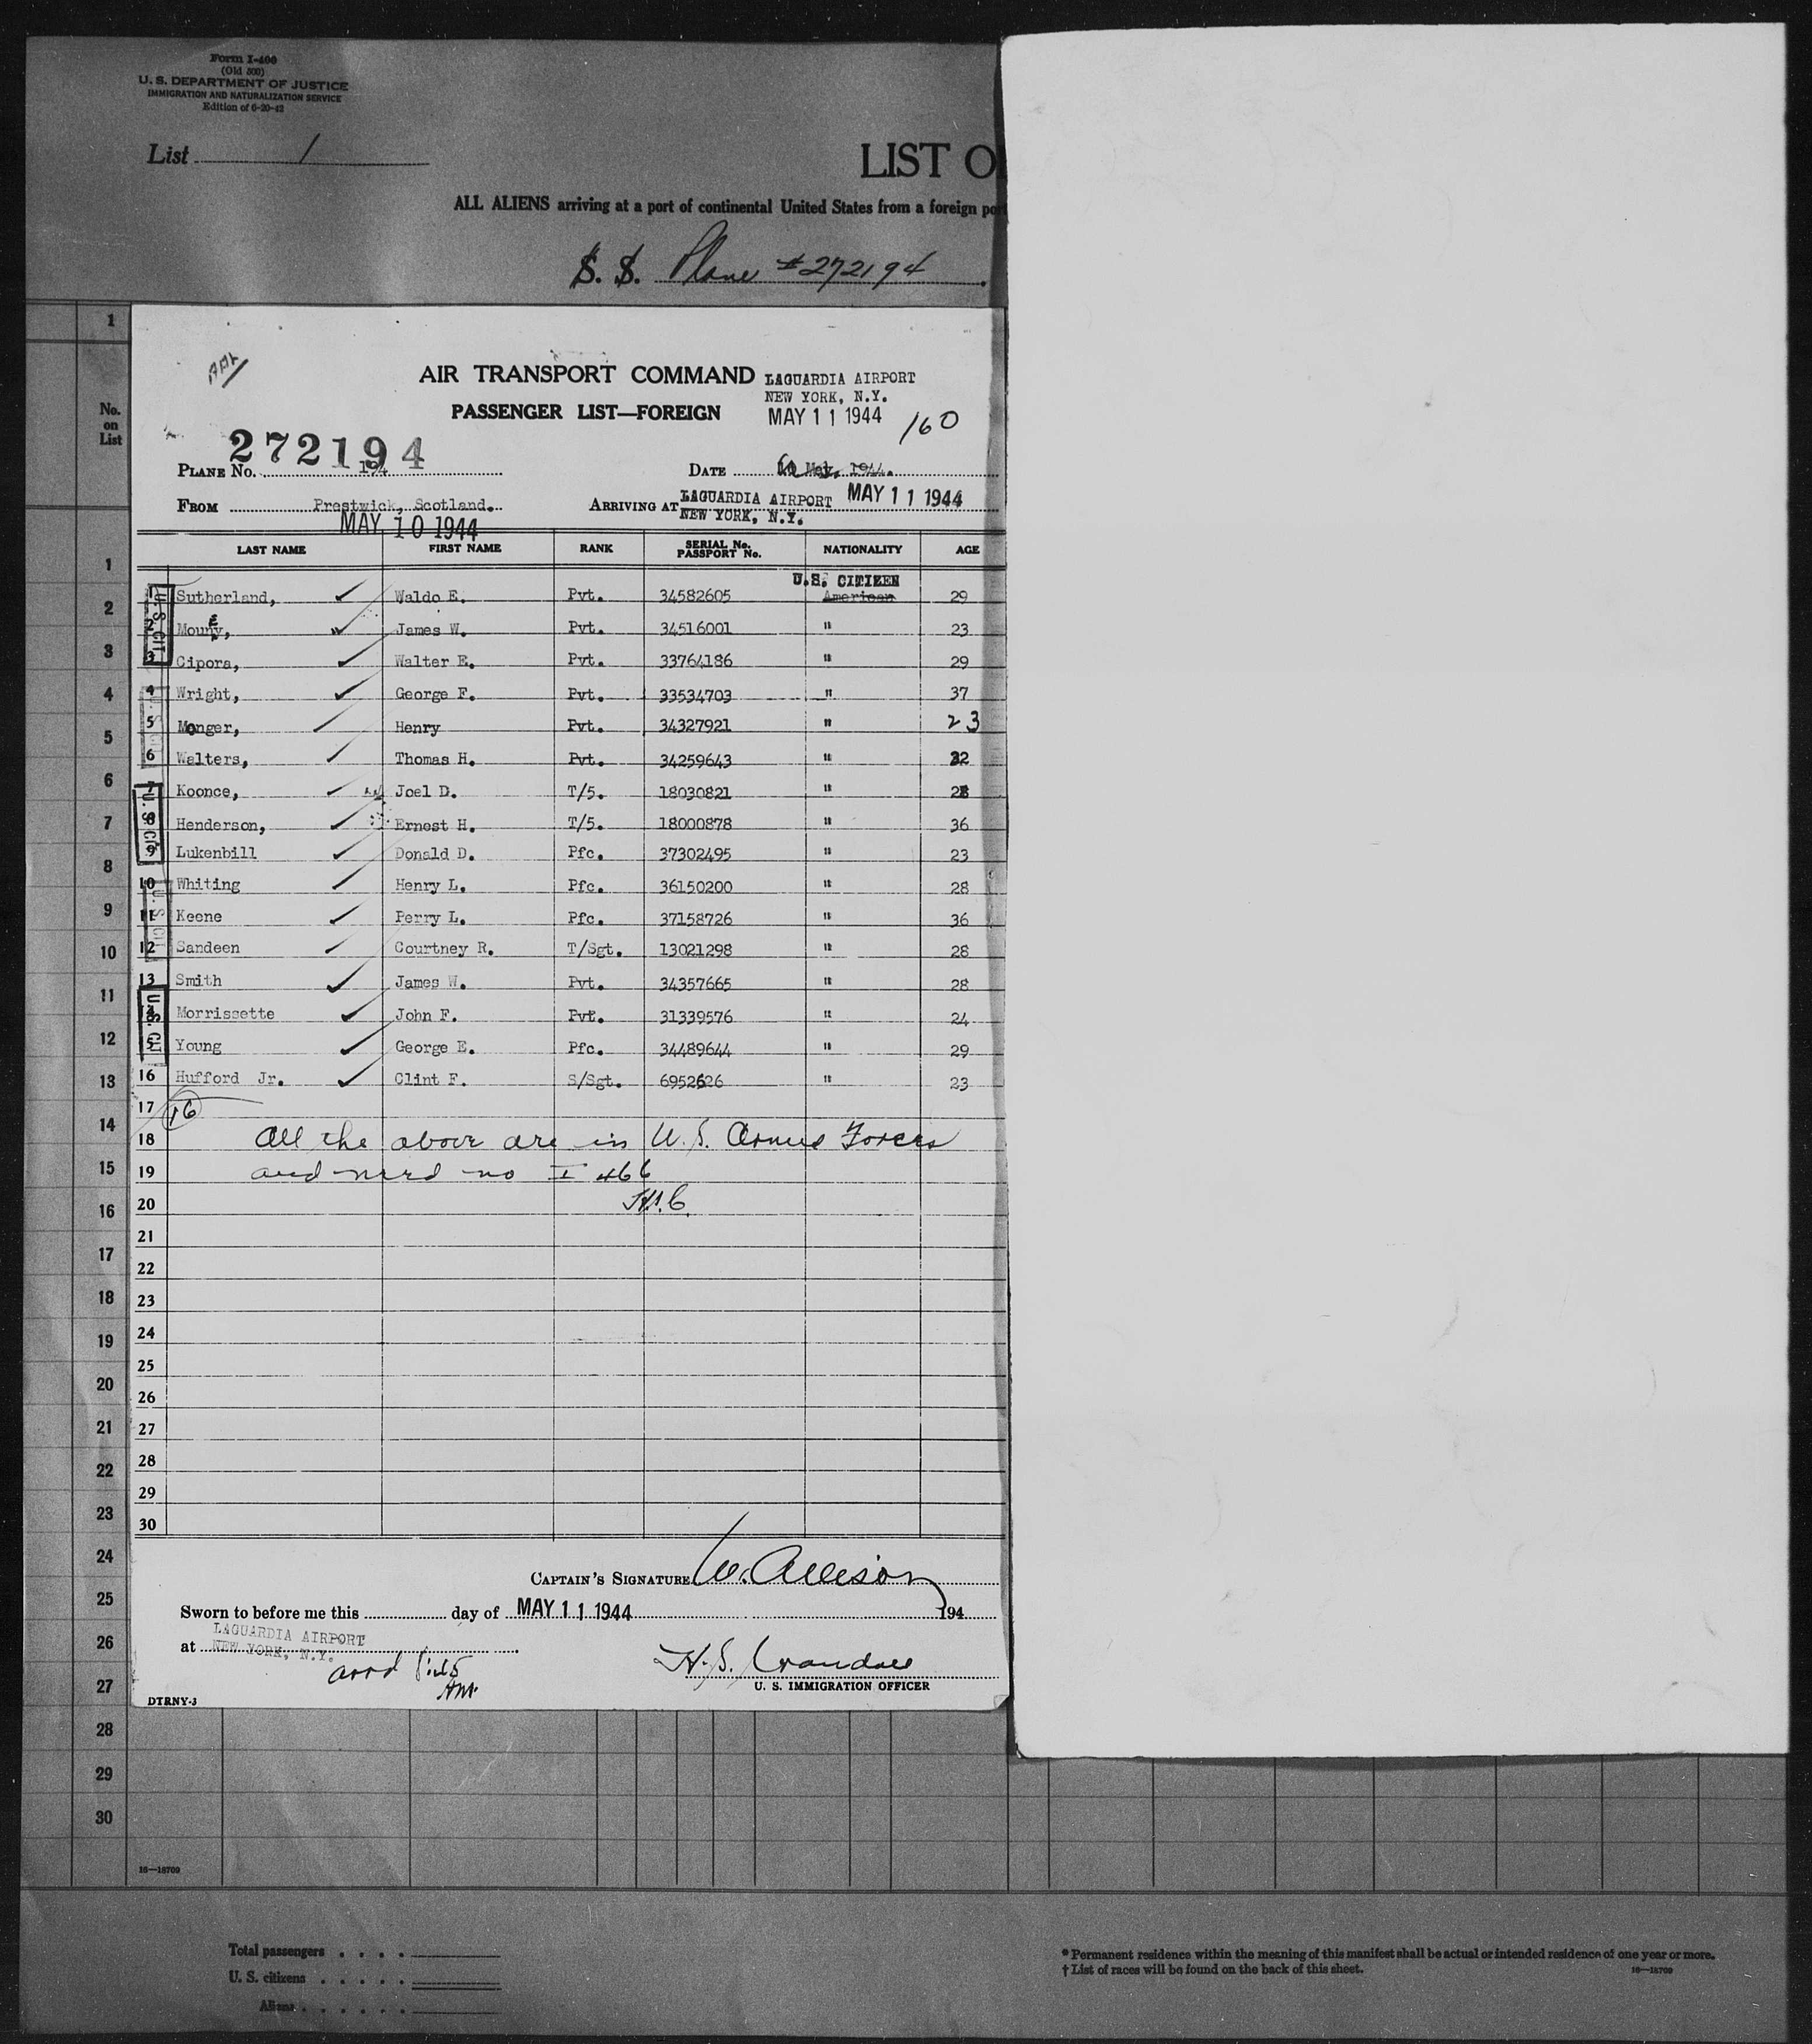 Form I-400
(Old 500)
U. S. DEPARTMENT OF JUSTICE
IMMIGRATION AND NATURALIZATION SERVICE
Edition of 6-20-42
List 1
LIST O
ALL ALIENS arriving at a port of continental United States from a foreign por
S. S. Plane #272194
AIR TRANSPORT COMMAND
PASSENGER LIST—FOREIGN
LAGUARDIA AIRPORT
NEW YORK, N.Y.
MAY 11 1944
160
PLANE No. 272194
DATE 10 May, 1944.
FROM Prestwick, Scotland.
MAY 10 1944
ARRIVING AT LAGUARDIA AIRPORT MAY 11 1944
NEW YORK, N.Y.
LAST NAME FIRST NAME RANK SERIAL No. PASSPORT No. NATIONALITY AGE
U.S. CITIZEN
1 Sutherland, Waldo E. Pvt. 34582605 American 29
2 James W. Pvt. 34516001 " 23
3 Cipora, Walter E. Pvt. 33764186 " 29
4 Wright, George F. Pvt. 33534703 " 37
5 Monger, Henry Pvt. 34327921 " 23
6 Walters, Thomas H. Pvt. 34259643 " 22
7 Koonce, Joel D. T/5. 18030821 "
8 Henderson, Ernest H. T/5. 18000878 " 36
9 Lukenbill Donald D. Pfc. 37302495 " 23
10 Whiting Henry L. Pfc. 36150200 " 28
11 Keene Perry L. Pfc. 37158726 " 36
12 Sandeen Courtney R. T/Sgt. 13021298 " 28
13 Smith James W. Pvt. 34357665 " 28
14 Morrissette John F. Pvt. 31339576 " 24
15 Young George E. Pfc. 34489644 " 29
16 Hufford Jr. Clint F. S/Sgt. 6952626 " 23
17 16
18 All the above are in U.S. Armed Forces
19 and need no I 466
20 H.C.
21
22
23
24
25
26
27
28
29
30
CAPTAIN'S SIGNATURE W. Allison
Sworn to before me this day of MAY 11 1944 194
at LAGUARDIA AIRPORT
NEW YORK, N.Y.
H. S. Crandall
U. S. IMMIGRATION OFFICER
DTRNY-3
No.
on
List
1
1
2
3
4
5
6
7
8
9
10
11
12
13
14
15
16
17
18
19
20
21
22
23
24
25
26
27
28
29
30
16—18709
Total passengers . . . .
U. S. citizens . . . . .
Aliens . . . . . .
* Permanent residence within the meaning of this manifest shall be actual or intended residence of one year or more.
† List of races will be found on the back of this sheet.
16—18709